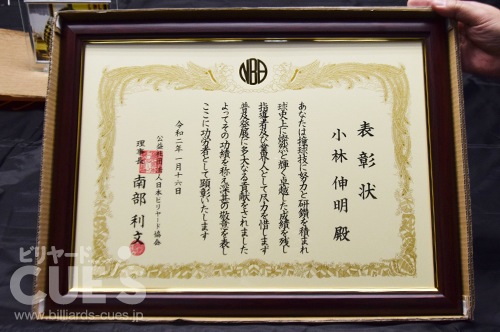 NBA
表彰状
小林伸明殿
あなたは撞球技に努力と研鑽を積まれ
球史上に燦然と輝く卓越した成績を残し
指導者及び業界人として尽力を惜します
普及発展に多大な貢献をされました
よってその功績を称え深甚の敬意を表し
ここに功労者として顕彰いたします
令和二年一月十六日
公益社団法人日本ビリヤード協会
理事長 南部利文
ビリヤード
CUE'S
www.billiards-cues.jp